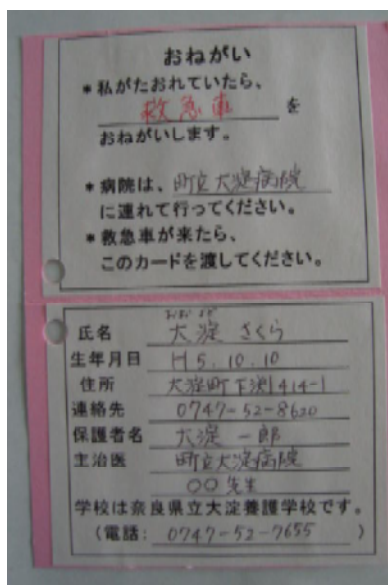 おねがい
*私がたおれていたら、
救急車を
おねがいします。
*病院は、町立大淀病院
に連れて行ってください。
*救急車が来たら、
このカードを渡してください。
おおよど
氏名 大淀 さくら
生年月日 H5.10.10
住所 大淀町下渕1414-1
連絡先 0747-52-8620
保護者名 大淀 一郎
主治医 町立大淀病院
○○先生
学校は奈良県立大淀養護学校です。
(電話: 0747-52-7655 )